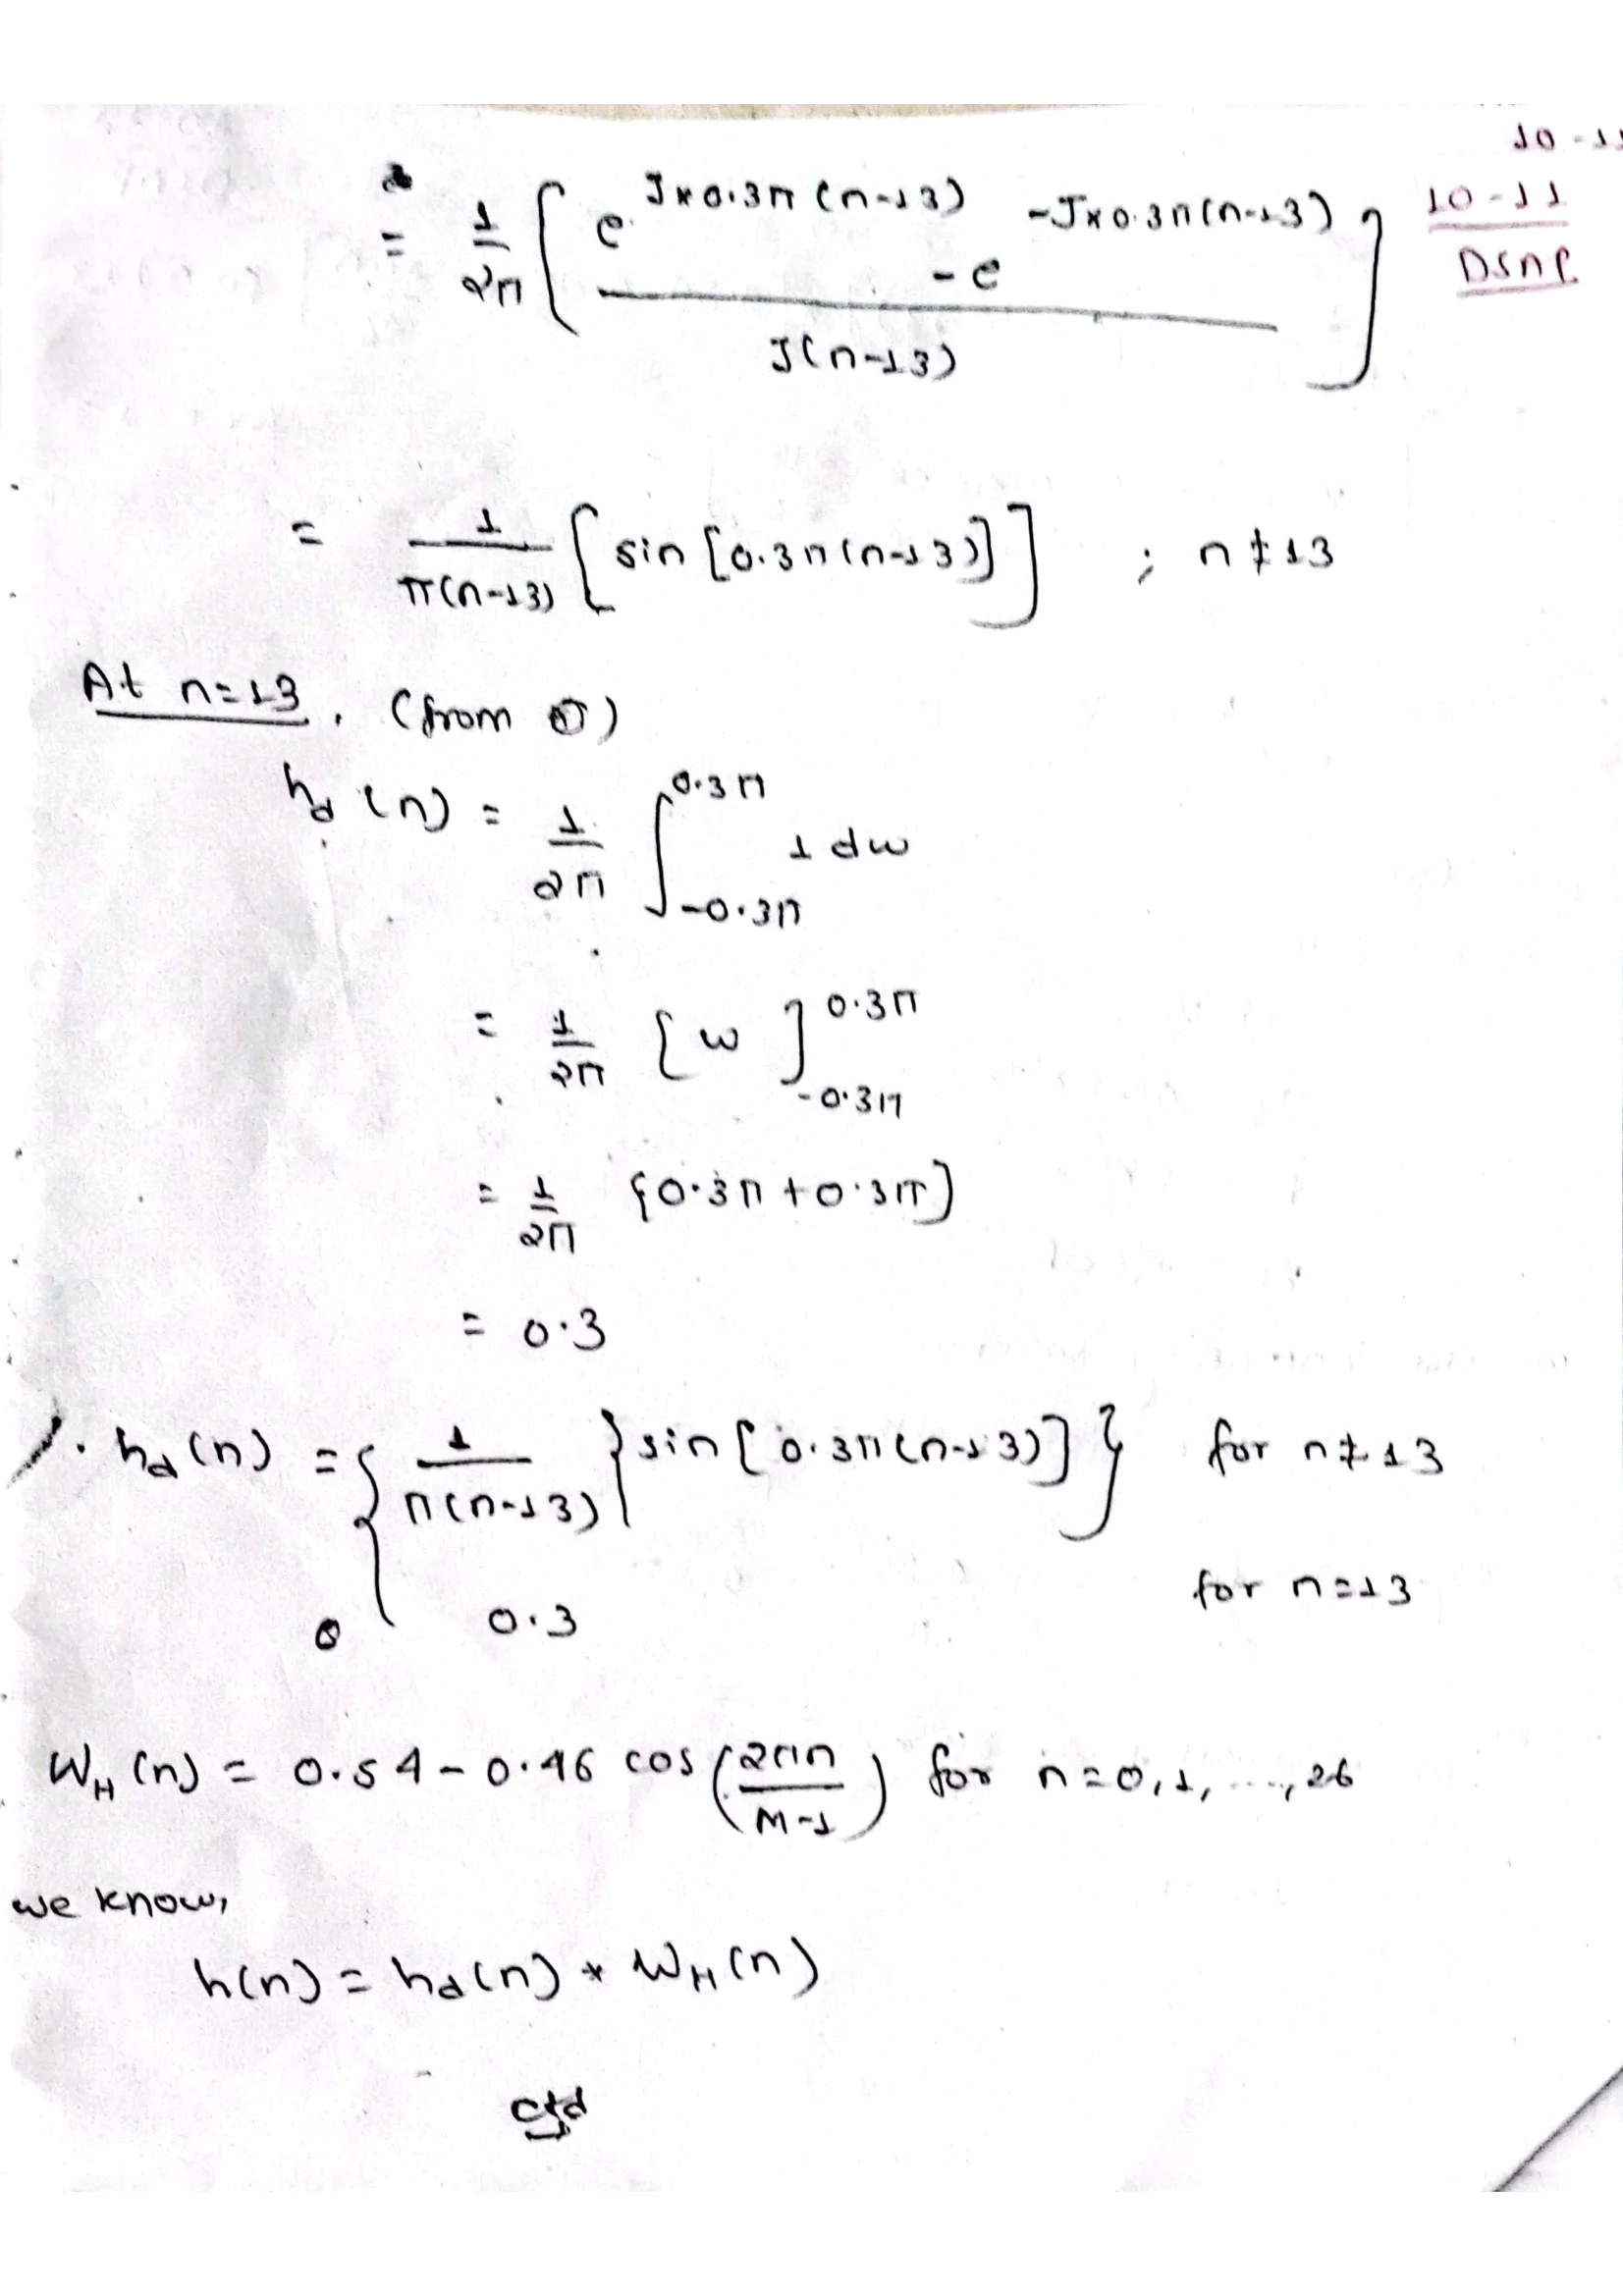 10-11
10-11
DSAP
= 1/2π [ (e^{J×0.3π(n-13)} - e^{-J×0.3π(n-13)}) / J(n-13) ]
= 1/π(n-13) { sin [0.3π(n-13)] ] ; n≠13
At n=13, (from ①)
h_d(n) = 1/2π ∫_{-0.3π}^{0.3π} 1 dω
= 1/2π [ω]_{-0.3π}^{0.3π}
= 1/2π {0.3π+0.3π]
= 0.3
∴ h_d(n) = { 1/π(n-13) {sin[0.3π(n-13)]} for n≠13
0.3 for n=13
W_H(n) = 0.54-0.46 cos(2πn/M-1) for n=0,1, ...., 26
we know,
h(n) = h_d(n) * W_H(n)
Ctd